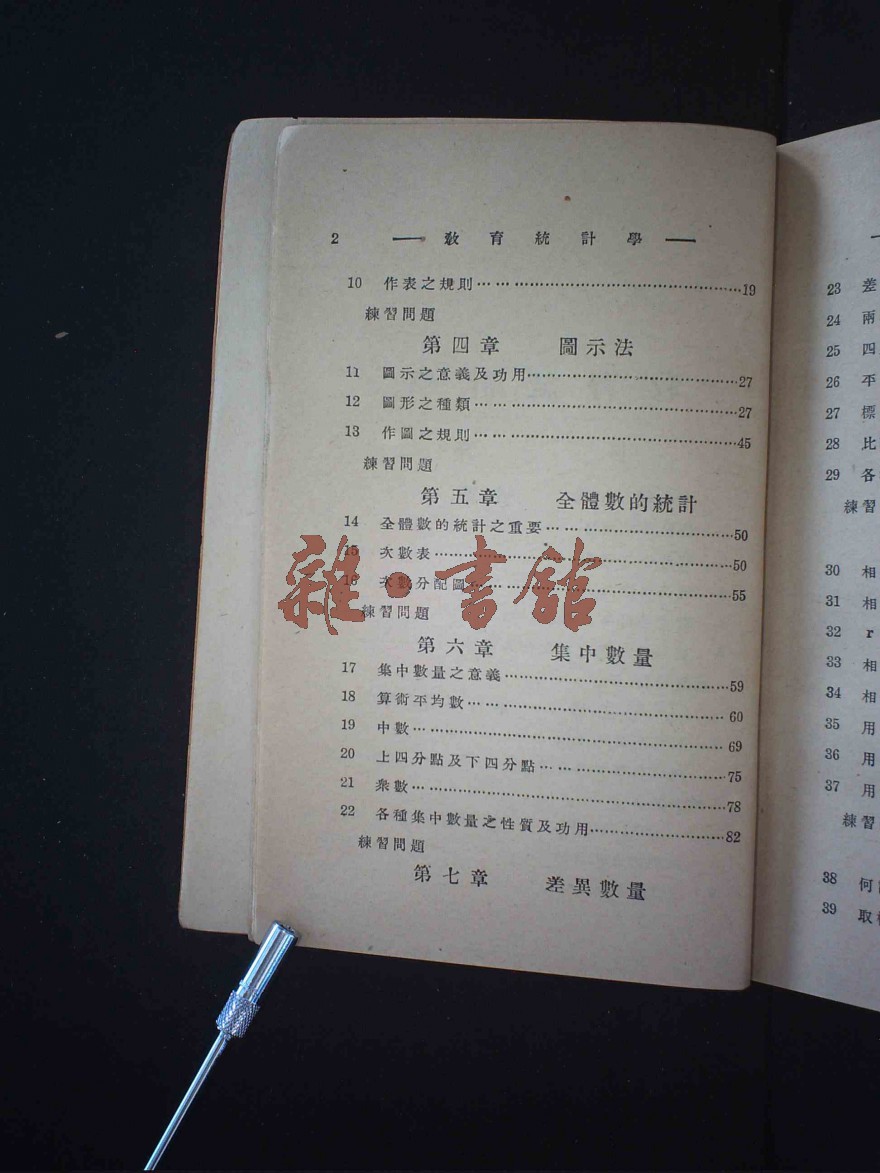 2 — 教育統計學 —
10 作表之規則………19
練習問題
第四章 圖示法
11 圖示之意義及功用………27
12 圖形之種類………27
13 作圖之規則………45
練習問題
第五章 全體數的統計
14 全體數的統計之重要………50
15 次數表………50
16 次數分配圖………55
練習問題
第六章 集中數量
17 集中數量之意義………59
18 算術平均數………60
19 中數………69
20 上四分點及下四分點………75
21 衆數………78
22 各種集中數量之性質及功用………82
練習問題
第七章 差異數量
雜·書館
23 差
24 兩
25 四
26 平
27 標
28 比
29 各
練習
30 相
31 相
32 r
33 相
34 相
35 用
36 用
37 用
練習
38 何
39 取